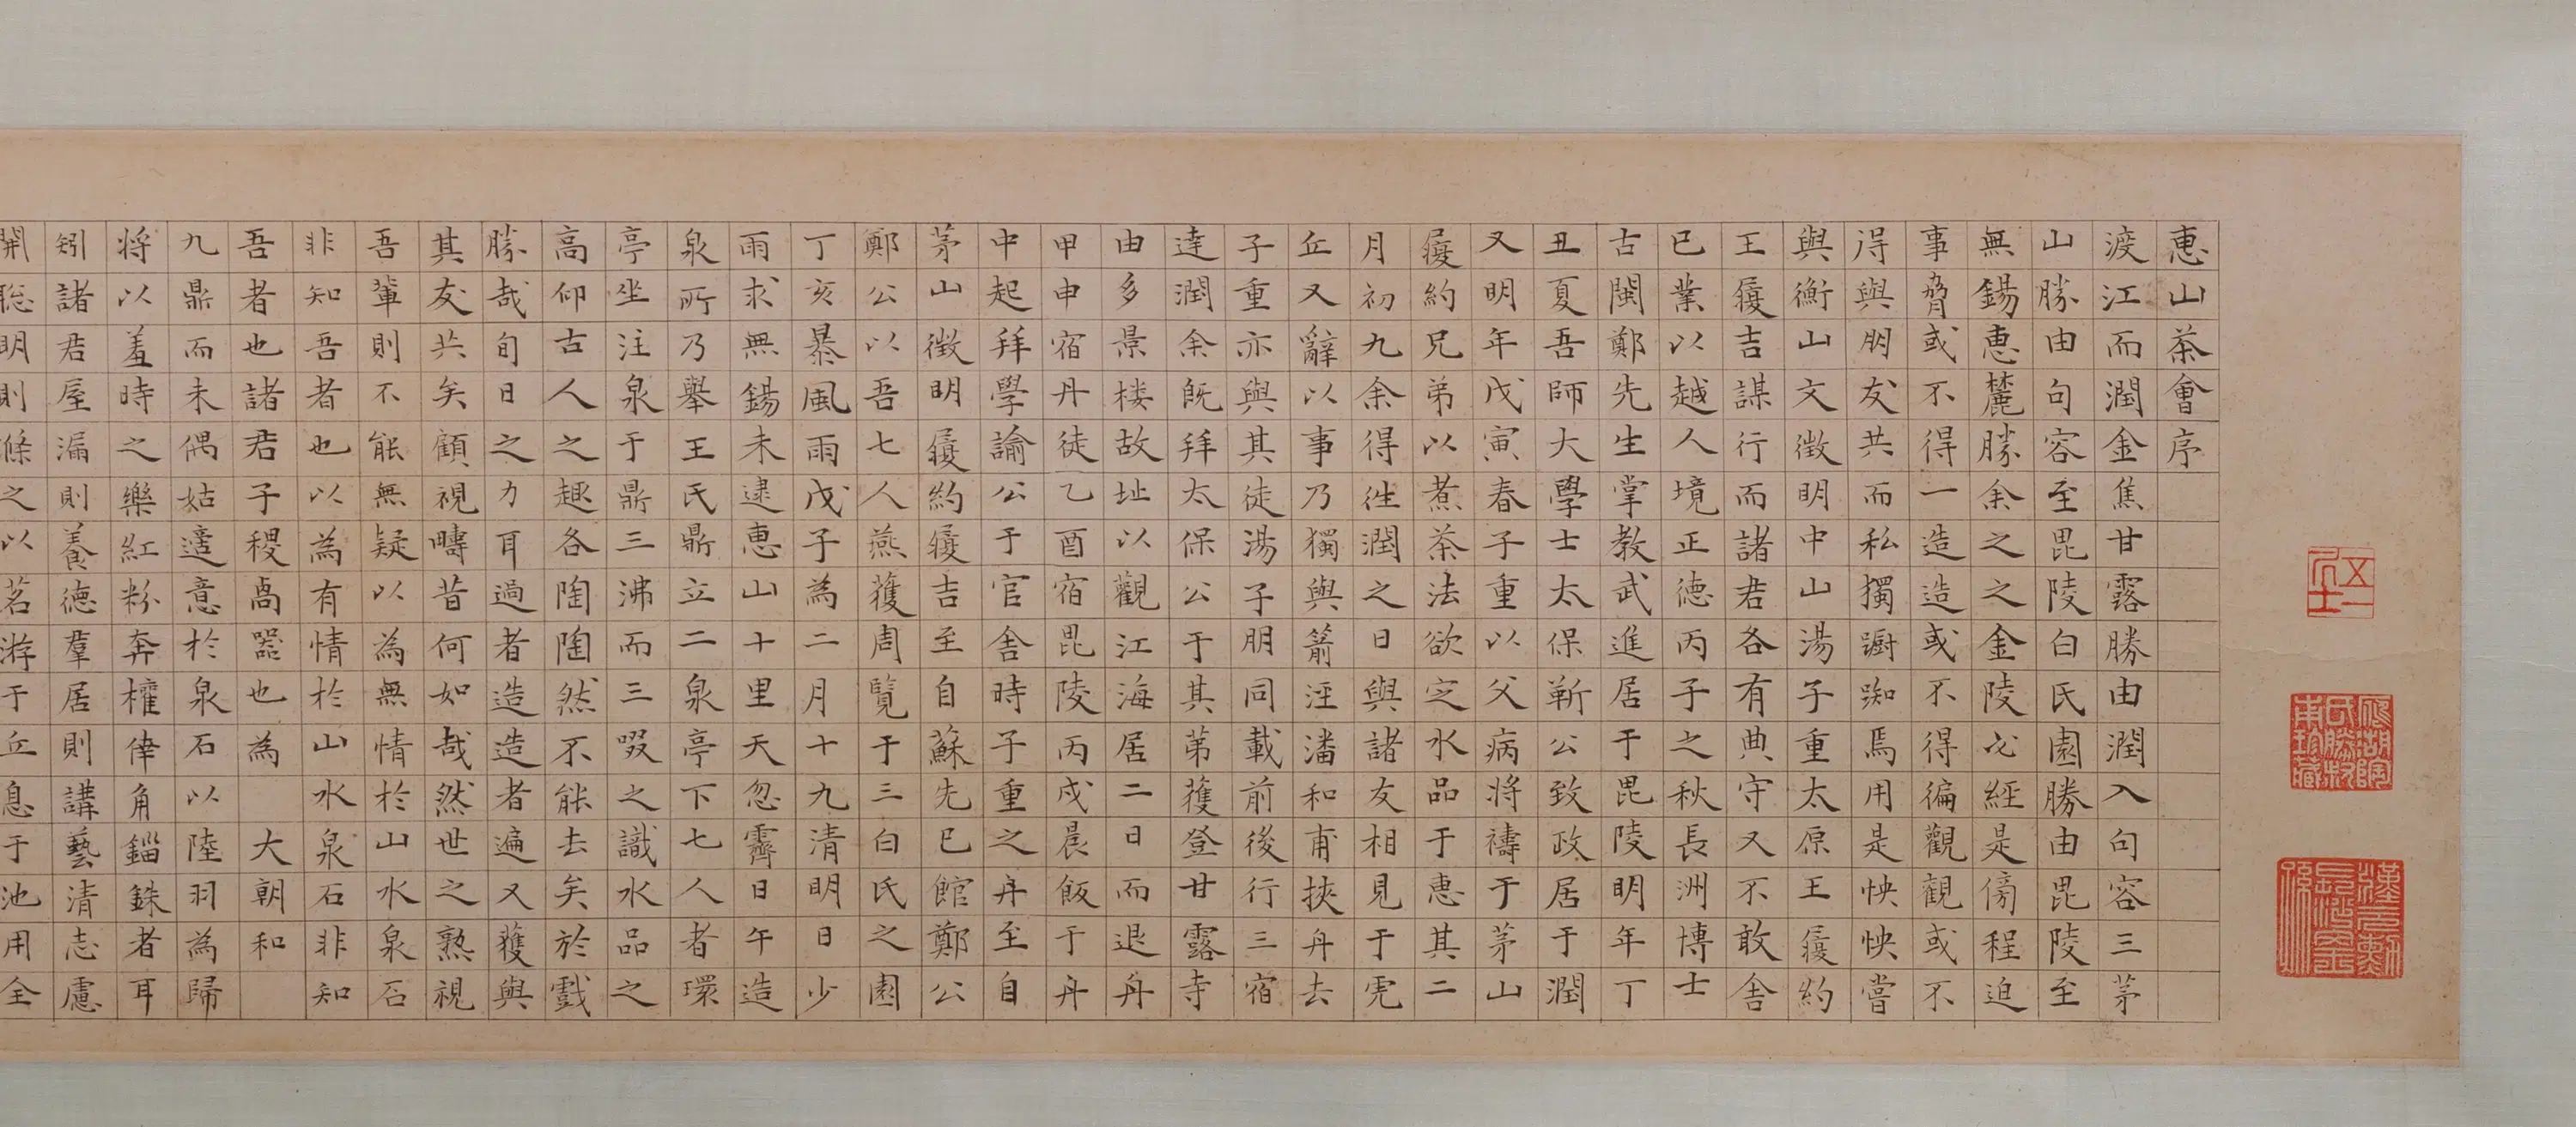 惠山茶會序
渡江而潤金焦甘露勝由潤入句容三茅
山勝由句容至毘陵白氏園勝由毘陵至
無錫惠麓勝余之之金陵必經是傍程迫
事脅或不得一造造或不得徧觀觀或不
得與朋友共而私獨躕踟焉用是怏怏嘗
與衡山文徵明中山湯子重太原王履約
王履吉謀行而諸君各有典守又不敢舍
已業以越人境正德丙子之秋長洲博士
古閩鄭先生掌教武進居于毘陵明年丁
丑夏吾師大學士太保靳公致政居于潤
又明年戊寅春子重以父病將禱于茅山
履約兄弟以煮茶法欲定水品于惠其二
月初九余得往潤之日與諸友相見于虎
丘又辭以事乃獨與箭涇潘和甫挾舟去
子重亦與其徒湯子朋同載前後行三宿
達潤余既拜太保公于其第獲登甘露寺
由多景楼故址以觀江海居二日而退舟
甲申宿丹徒乙酉宿毘陵丙戌晨飯于舟
中起拜學諭公于官舍時子重之舟至自
茅山徵明履約履吉至自蘇先已館鄭公
鄭公以吾七人燕獲周覽于三白氏之園
丁亥暴風雨戊子為二月十九清明日少
雨求無錫未逮惠山十里天忽霽日午造
泉所乃舉王氏鼎立二泉亭下七人者環
亭坐注泉于鼎三沸而三啜之識水品之
高仰古人之趣各陶陶然不能去矣於戲
勝哉旬日之力耳過者造造者遍又獲與
其友共矣顧視疇昔何如哉然世之熟視
吾輩則不能無疑以為無情於山水泉石
非知吾者也以為有情於山水泉石非知
吾者也諸君子稷卨器也為 大朝和
九鼎而未偶姑適意於泉石以陸羽為歸
将以羞時之樂紅粉奔權倖角錙銖者耳
矧諸君屋漏則養德羣居則講藝清志慮
開聡明則滌之以茗游于丘息于池用全